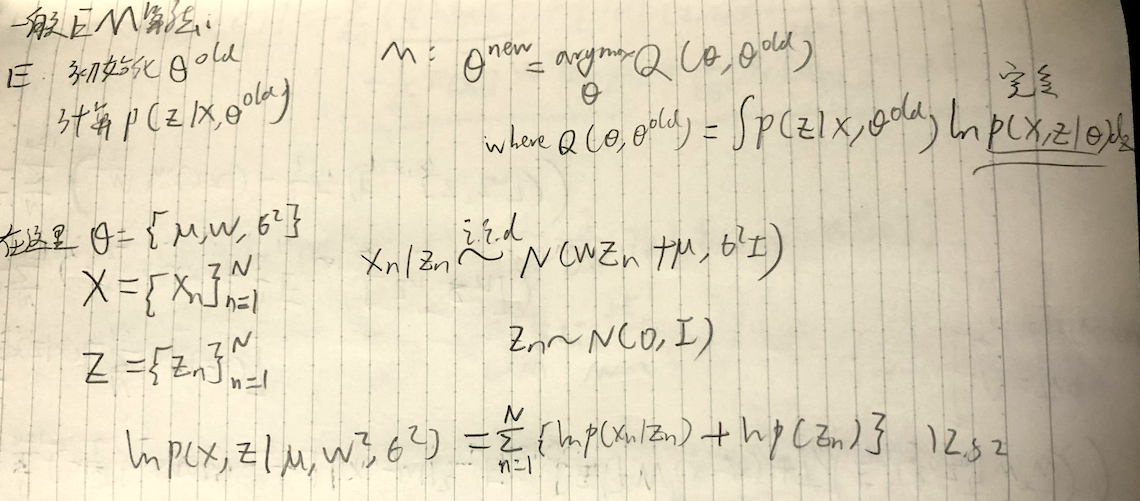 一般EM算法:
E 初始化 θ^old
计算 p(z|x, θ^old)
M: θ^new = argmax_θ Q(θ, θ^old)
where Q(θ, θ^old) = ∫p(z|x, θ^old) ln p(x,z|θ)dz
完全
在这里 θ={μ,w,σ²}
X={xn}_{n=1}^N
Z={zn}_{n=1}^N
xn|zn ~^{i.i.d} N(Wzn+μ, σ²I)
zn~N(0, I)
ln p(x,z|μ,w²,σ²) = Σ_{n=1}^N {ln p(xn|zn) + ln p(zn)} 12.52